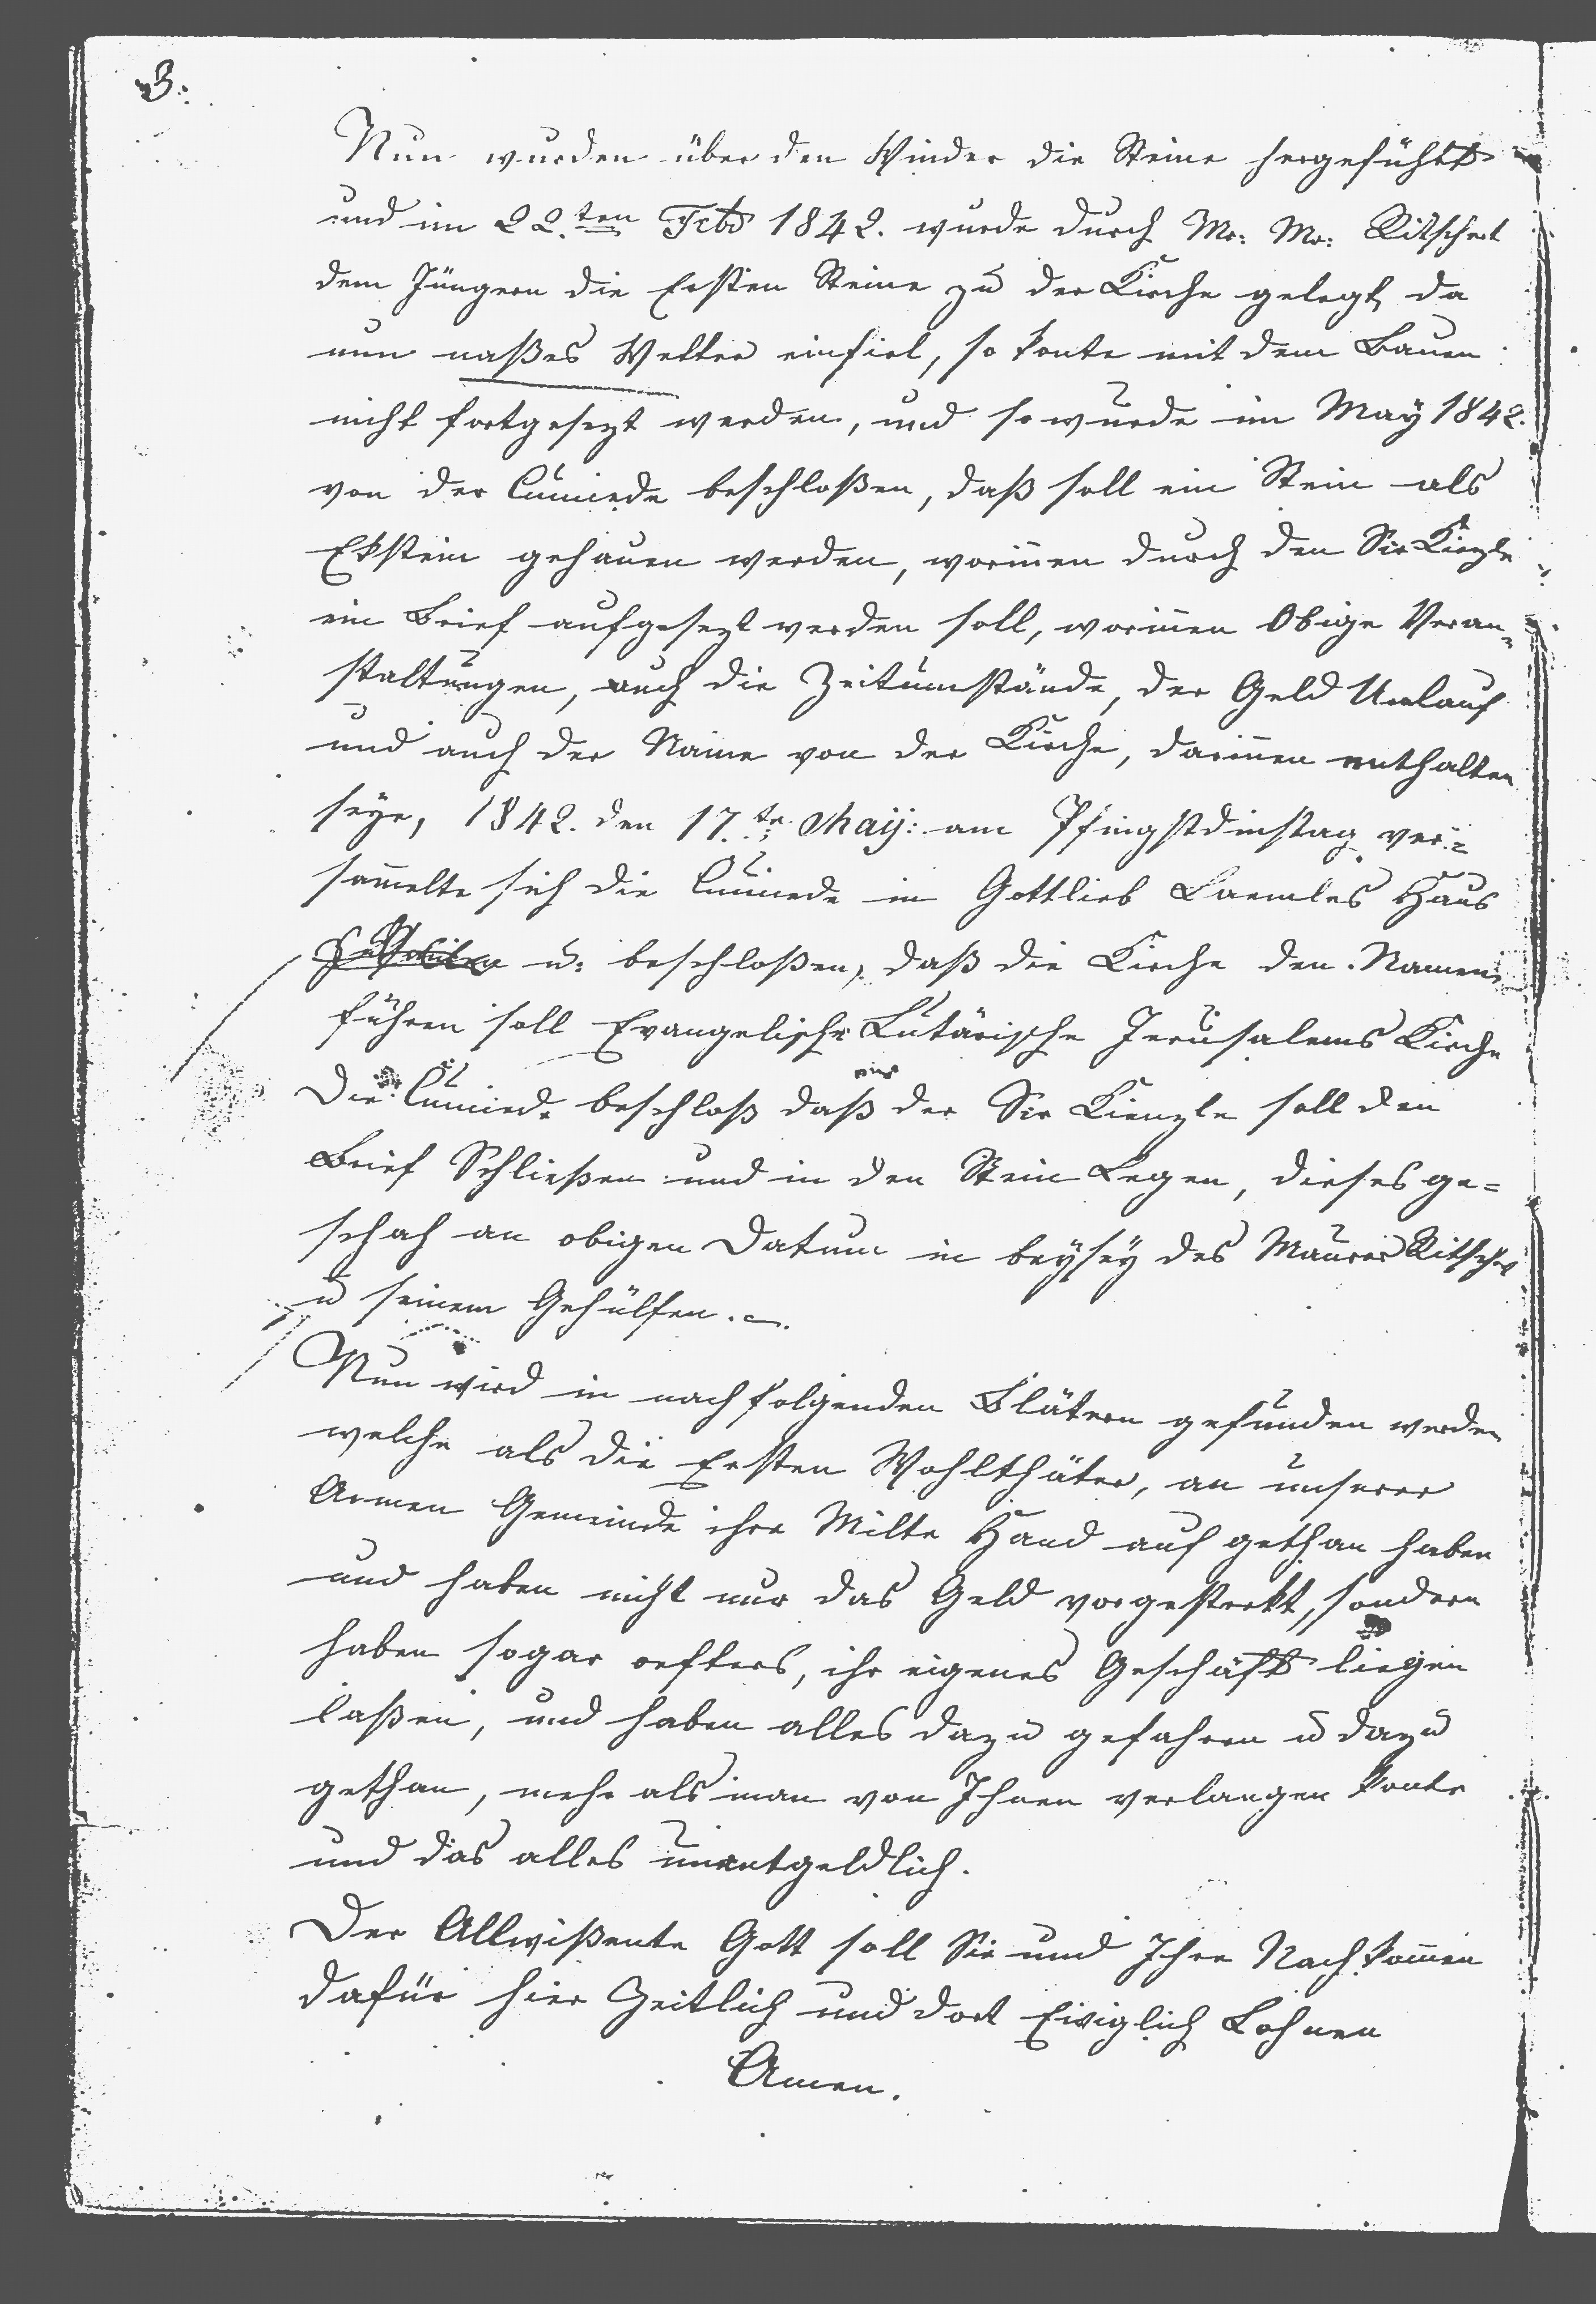 3.
Nun wurden über den Winder die Steine hergeführt
und im 22.ten Feb 1842. wurde durch Mr: Mr: Ritschert
dem Jüngern die Ersten Steine zu der Kirche gelegt, da
nun naßes Wetter einfiel, so konte mit dem Bauen
nicht fortgesezt werden, und so wurde im May 1842.
von der Cumiede beschloßen, daß soll ein Stein als
Ekstein gehauen werden, worinnen durch den Sir Kienzle
ein Brief aufgesezt werden soll, worinnen Obige Veran-
staltungen, auch die Zeitumstände, der Geld Umlauf
und auch der Name von der Kirche, darinnen enthalten
seye, 1842. den 17.te May: am Pfingstdinstag ver-
sammelte sich die Cumiede in Gottlieb Laemles Haus
u: beschloßen, daß die Kirche den Namen
führen soll Evangelische Lutärische Jerusalems Kirche
Die Cumiede beschloß daß der Sir Kienzle soll den
Brief Schließen und in den Stein Legen, dieses ge=
schah an obigen Datum in beysey des Maurer Ritschert
u seinem Gehülfen.
Nun wird in nachfolgenden Blätern gefunden werden
welche als die Ersten Wohlthäter, an unserer
Armen Gemeinde ihre Milte Hand auf gethan haben
und haben nicht nur das Geld vorgestrekt, sondern
haben sogar oefters, ihr eigenes Geschäft liegen
laßen, und haben alles dazu gefahren u dazu
gethan, mehr als man von Ihnen verlangen konte
und das alles unentgeldlich.
Der Allwißente Gott soll Sie und Ihre Nachkommen
dafür hier Zeitlich und dort Ewiglich Lohnen
Amen.